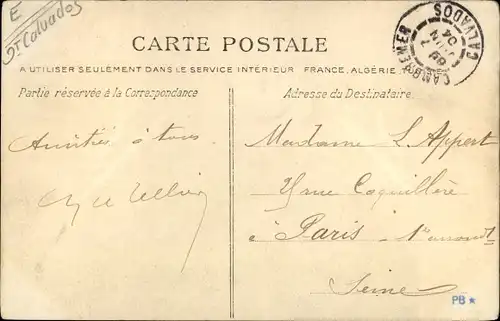 E
Dt Calvados
CAMBREMER
CALVADOS
04
CARTE POSTALE
A UTILISER SEULEMENT DANS LE SERVICE INTÉRIEUR FRANCE, ALGÉRIE,
Partie réservée à la Correspondance
Adresse du Destinataire.
Amitiés à tous
Madame L Appert
rue Coquillère
à Paris
Seine
PB